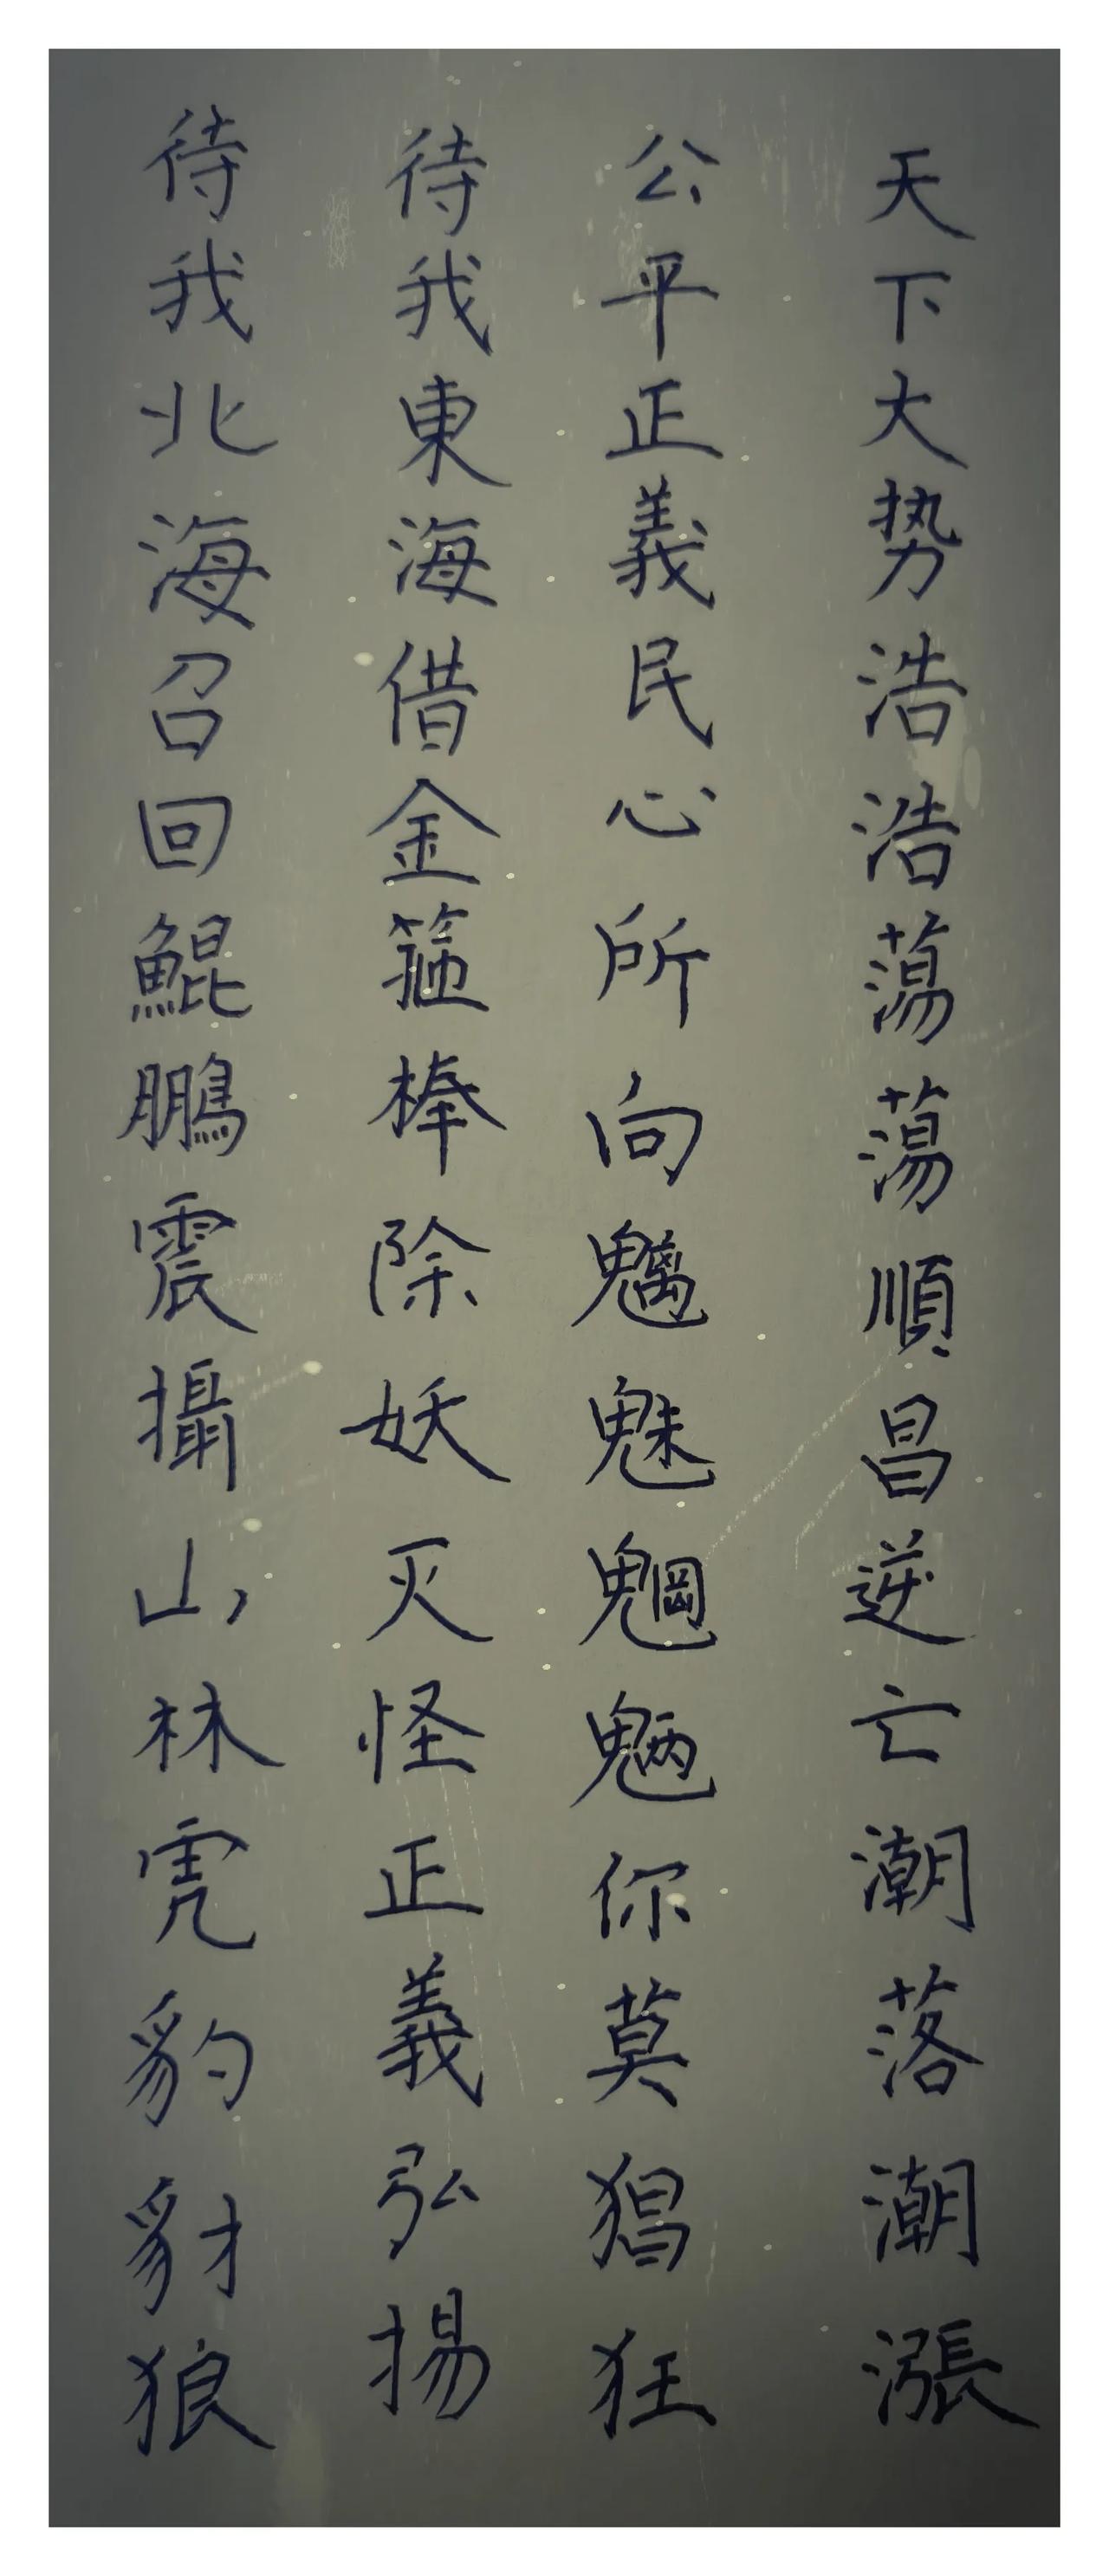 天下大势浩浩蕩蕩順昌逆亡潮落潮漲
公平正義民心所向魑魅魍魎你莫猖狂
待我東海借金箍棒除妖灭怪正義弘揚
待我北海召回鯤鵬震攝山林虎豹豺狼